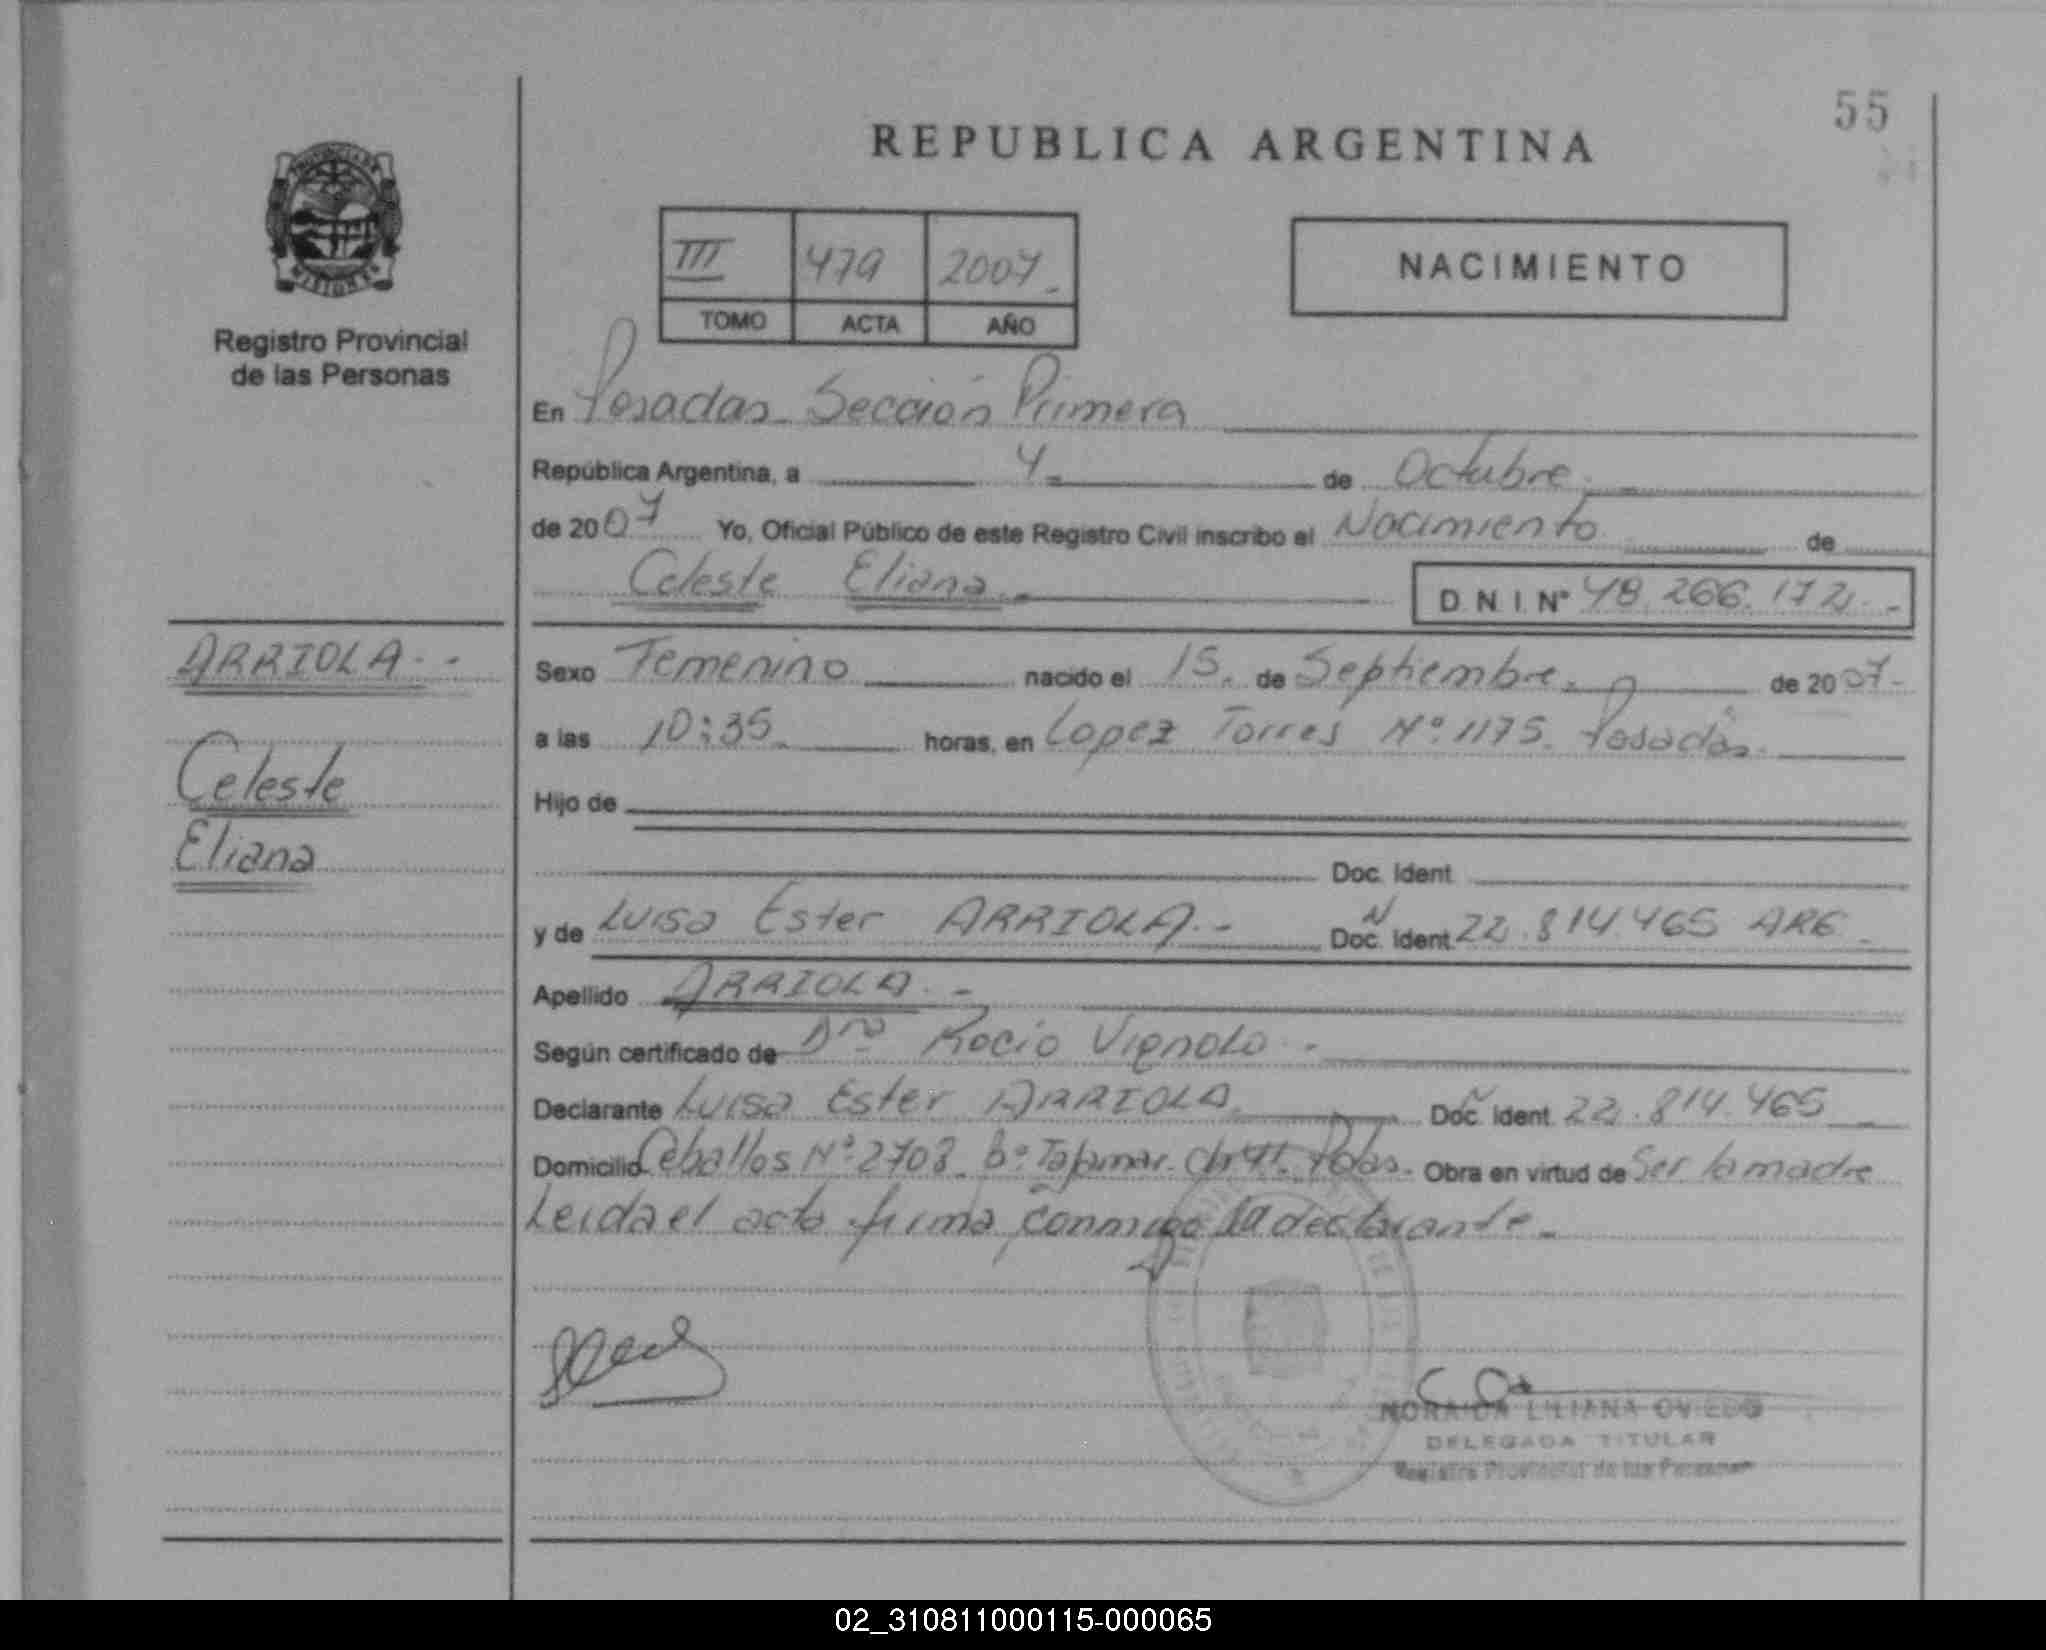 55
REPUBLICA ARGENTINA
PROVINCIA DE
MISIONES
Registro Provincial
de las Personas
III 479 2007
TOMO ACTA AÑO
NACIMIENTO
En Posadas Sección Primera
República Argentina, a 4 de Octubre
de 2007 Yo, Oficial Público de este Registro Civil inscribo el Nacimiento de
Celeste Eliana D N I Nº 48.266.172
ARRIOLA
Celeste
Eliana
Sexo Femenino nacido el 15 de Septiembre de 2007
a las 10:35 horas, en Lopez Torres Nº 1175 Posadas
Hijo de
Doc. Ident.
y de Luisa Ester ARRIOLA Doc. Ident. 22.814.465 ARG
Apellido ARRIOLA
Según certificado de Dra Rocio Vignolo
Declarante Luisa Ester ARRIOLA Doc. Ident. 22.814.465
Domicilio Ceballos Nº 2703 Bº Tajamar Pdas. Obra en virtud de Ser la madre
Leida el acta firma conmigo la declarante
NORAIDA LILIANA OVIEDO
DELEGADA TITULAR
Registro Provincial de las Personas
02_310811000115-000065